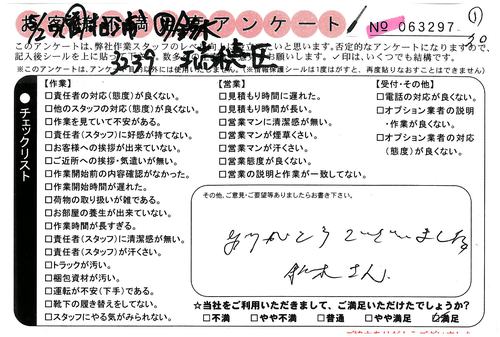 お客様不満足度アンケート
No 063297
①
このアンケートは、弊社作業スタッフのレベル
否定的なアンケートになりますので、
記入後シールを上に貼って
お願いします。✓印は、いくつでも結構です。
※このアンケートは、
以外には使用いたしません。
(※情報保護シールは1度はがすと、再度貼りなおすことはできません)
チェックリスト
【作業】
□責任者の対応(態度)が良くない。
□他のスタッフの対応(態度)が良くない。
□作業を見ていて不安がある。
□責任者(スタッフ)に好感が持てない。
□お客様への挨拶が出来ていない。
□ご近所への挨拶・気遣いが無い。
□作業開始前の内容確認がなかった。
□作業開始時間が遅れた。
□荷物の取り扱いが雑である。
□お部屋の養生が出来ていない。
□作業時間が長すぎる。
□責任者(スタッフ)に清潔感が無い。
□責任者(スタッフ)が汗くさい。
□トラックが汚い。
□梱包資材が汚い。
□運転が不安(下手)である。
□靴下の履き替えをしてない。
□スタッフにやる気がみられない。
【営業】
□見積もり時間に遅れた。
□見積もり時間が長い。
□営業マンに清潔感が無い。
□営業マンが煙草くさい。
□営業マンが汗くさい。
□営業態度が良くない。
□営業の説明と作業が一致してない。
【受付・その他】
□電話の対応が良くない。
□オプション業者の説明
・作業が良くない。
□オプション業者の対応
(態度)が良くない。
その他、ご意見・ご要望等ありましたらお書き下さい。
ありがとうございました
鈴木さん
☆当社をご利用いただきまして、ご満足いただけたでしょうか?
□不満 □やや不満 □普通 □やや満足 ☑満足